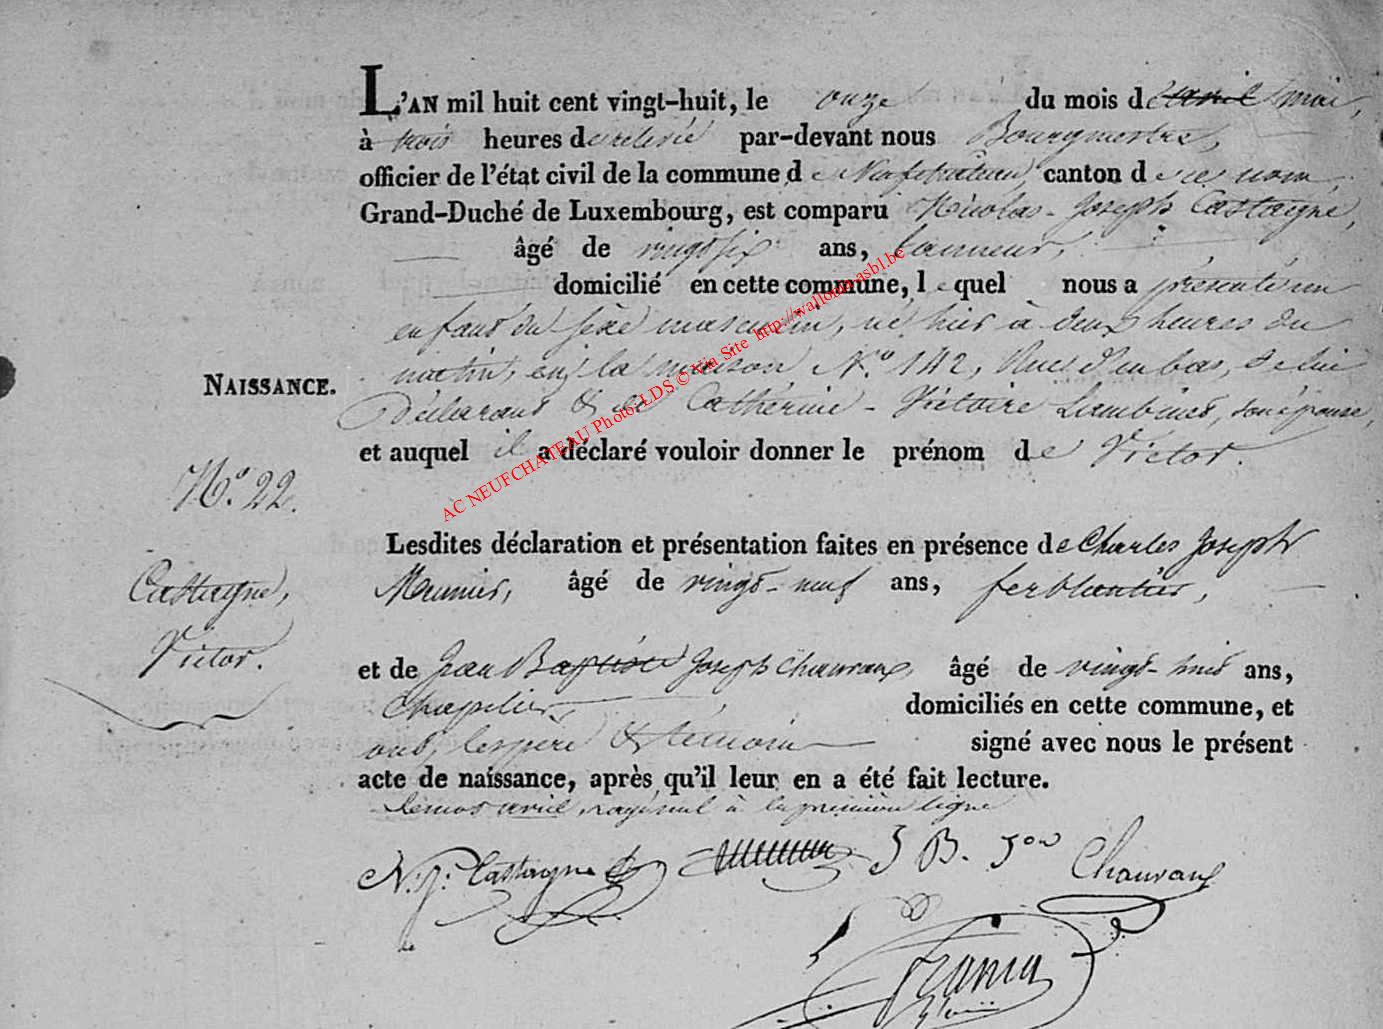 L'AN mil huit cent vingt-huit, le onze du mois de avril mai,
à trois heures de relevé par-devant nous Bourgmestre,
officier de l'état civil de la commune de Neufchateau, canton de ce nom,
Grand-Duché de Luxembourg, est comparu Nicolas-Joseph Castagne,
âgé de vingt six ans, tanneur,
domicilié en cette commune, lequel nous a présenté un
enfant du sexe masculin, né hier à deux heures du
matin, en la maison N.° 142, Rue d'en bas, de lui
NAISSANCE.
déclarant & de Catherine-Victoire Lambinet, son épouse,
et auquel il a déclaré vouloir donner le prénom de Victor.
N.° 22.
Lesdites déclaration et présentation faites en présence de Charles Joseph
Castagne,
Meunier, âgé de vingt-neuf ans, ferblantier,
Victor.
et de Jean Baptiste Joseph Chauvaux, âgé de vingt-huit ans,
Chapelier, domiciliés en cette commune, et
ont, les père & témoins signé avec nous le présent
acte de naissance, après qu'il leur en a été fait lecture.
Le mot avril, rayé nul à la première ligne
N. J. Castagne J B. Jos Chauvaux
AC NEUFCHATEAU Photo LDS © Via Site http://wallonia-asbl.be